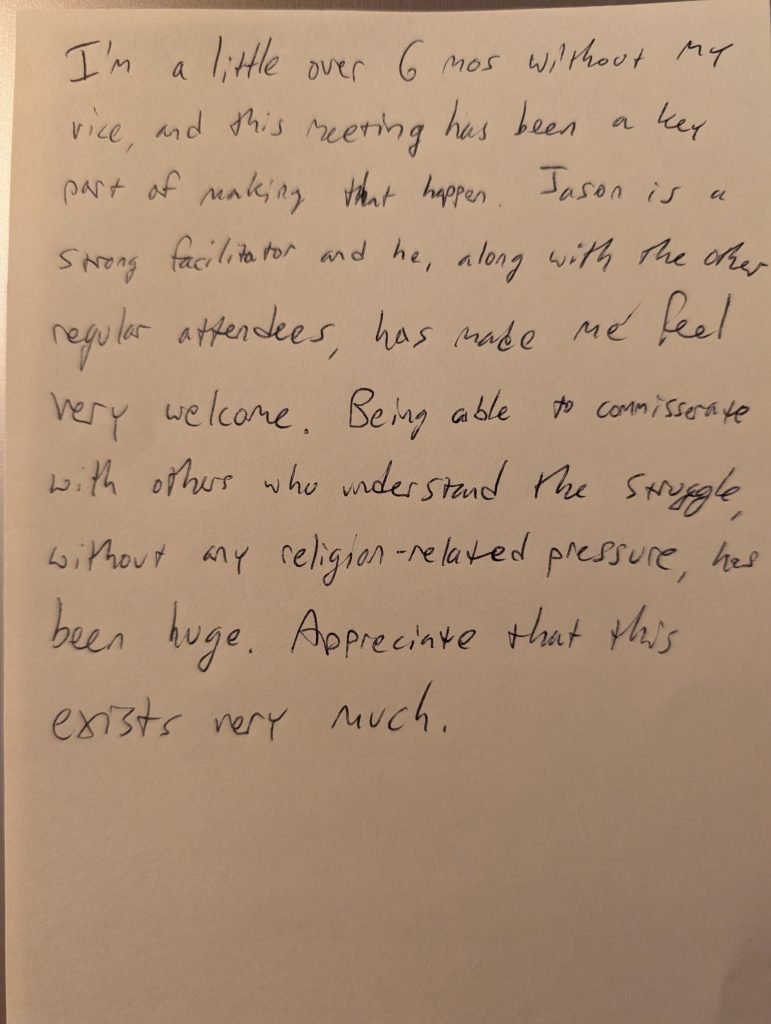 I'm a little over 6 mos without my
vice, and this meeting has been a key
part of making that happen. Jason is a
strong facilitator and he, along with the other
regular attendees, has made me feel
very welcome. Being able to commisserate
with others who understand the struggle,
without any religion-related pressure, has
been huge. Appreciate that this
exists very much.